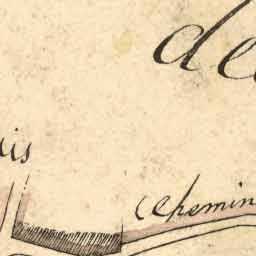 de
is
Chemin